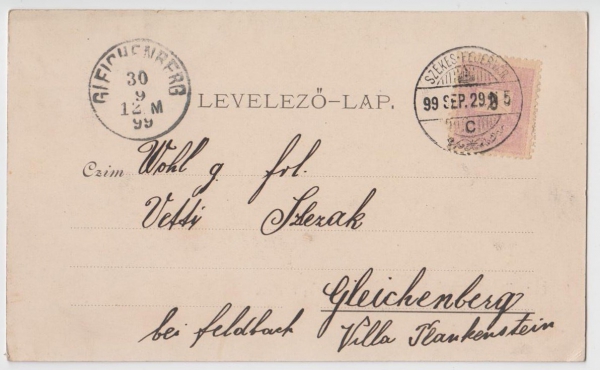 GLEICHENBERG
30
9
12 M
99
LEVELEZŐ-LAP.
SZÉKES-FEHÉRVÁR
99 SEP. 29. 5
C
Czim Wohl g. frl.
Vetti Slezak
Gleichenberg
bei feldbach Villa Plankenstein